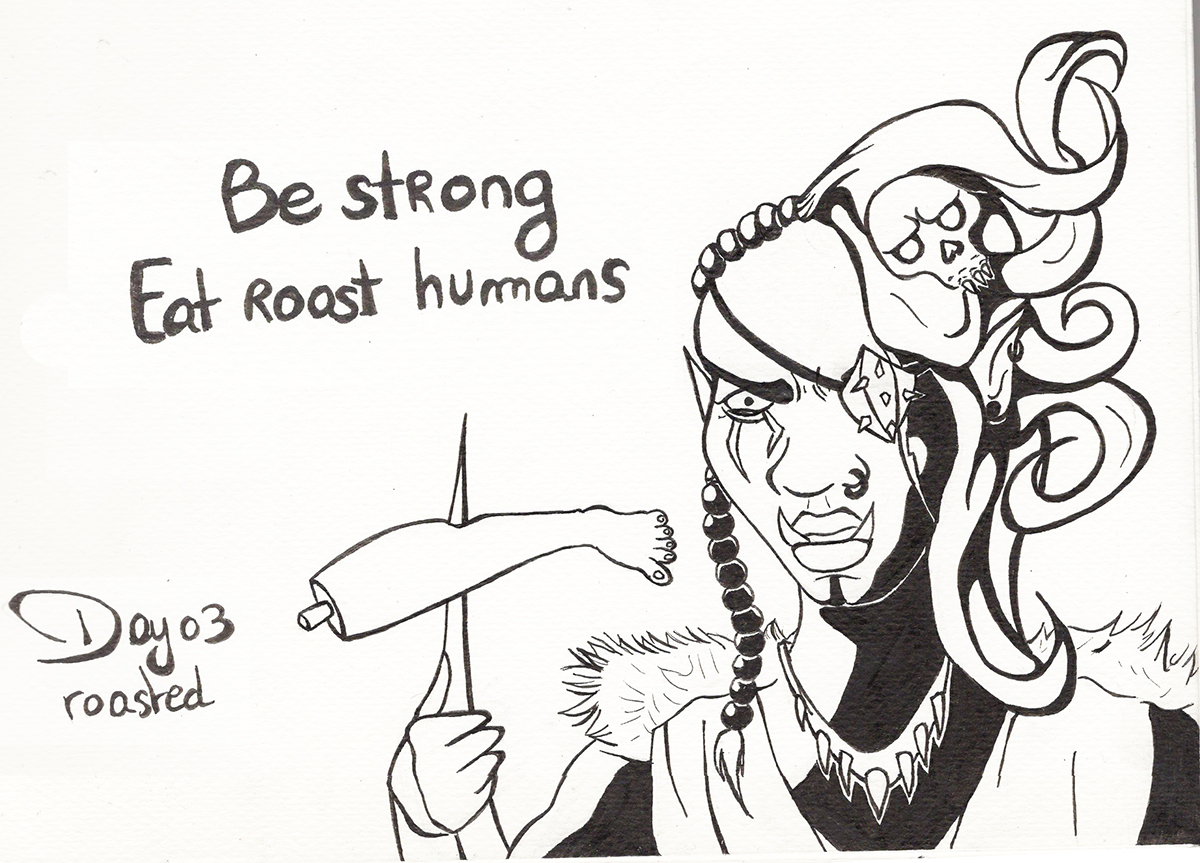 Be strong
Eat Roast humans
Day 03
roasted